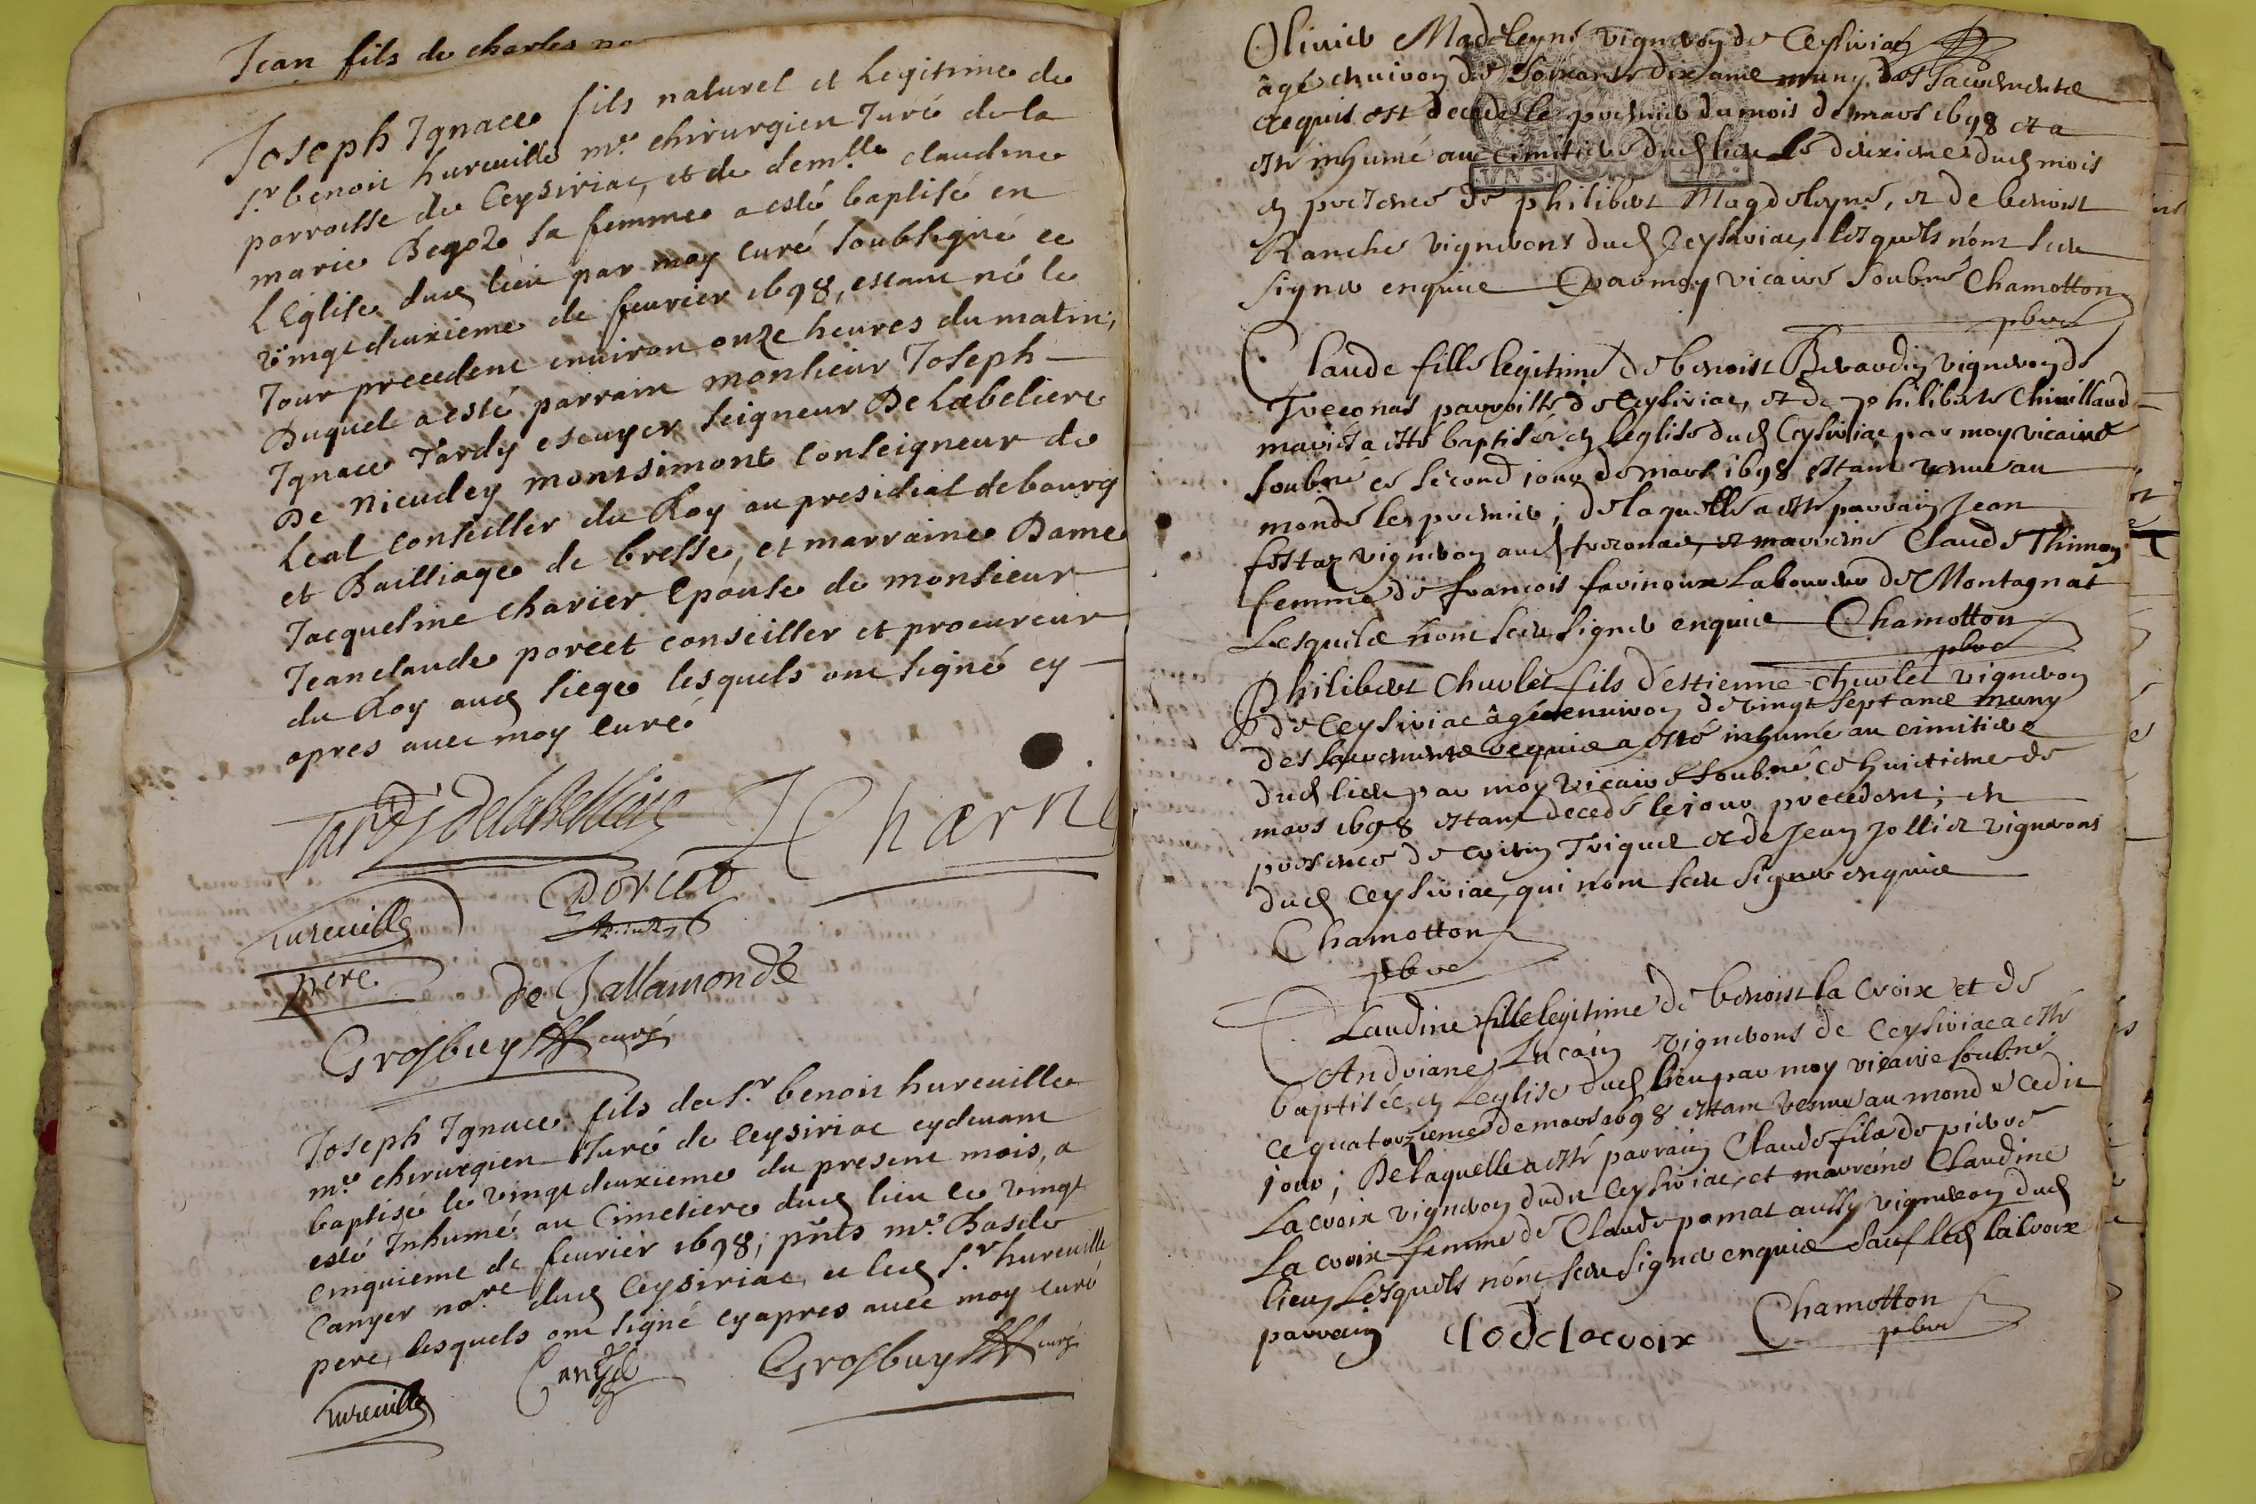 Jean fils de charles
Joseph Ignace fils naturel et legitime de
Sr. benoit hureuille me. chirurgien Juré de la
parroisse de Ceysiriac, et de demlle claudine
marie Begoz sa femme a esté baptisé en
l'Eglise dud lieu par moy curé soubsigné ce
vingt deuxieme de feurier 1698, estant né le
Jour precedent enuiron onze heures du matin,
Duquel a esté parrain monsieur Joseph
Ignace Tardy escuyer seigneur De Labeliere
De nieudey montsimont conseigneur de
Leal conseiller du Roy au presidial de bourg
et Bailliage de bresse, et marraine Dame
Jacqueline charier Epouse de monsieur
Jeanclaude porcet conseiller et procureur
du Roy aud siege lesquels ont signé cy
apres auec moy curé
Tardy DelaBelliere J Charrie
Porcet
hureuille
pere
de Jallamonde
Grosbuy curé
Joseph Ignace fils de Sr. benoit hureuille
me. chirurgien Juré de Ceysiriac cydeuant
baptisé le vingt deuxieme du present mois, a
esté Inhumé au Cimetiere dud lieu le vingt
cinquieme de feurier 1698; pnts me. Basile
Canyer nore. dud Ceysiriac, et led Sr. hureuille
pere, lesquels ont signé cy apres auec moy curé
Grosbuy curé
hureuille
Oliuier Madeleyne vigneron de Ceysiriat
âgé enuiron de soixante dix ans muny des sacremente
requis est decedé le premier du mois de mars 1698 et a
esté inhumé au cimitiere dud lieu le deuxieme dud mois
en presence de philibert Magdeleyne, et de benoist
Ranche vignerons dud Ceysiriac, lesquels n'ont sceu
signer enquis par moy vicaire soubné Chamotton
pbre
Claude fille legitime de benoist Beraudin vigneron de
Treconas parroisse de Ceysiriac, et de philiberte Chiuilland
mariés a esté baptisée en l'eglise dud Ceysiriac par moy vicaire
soubné ce second iour de mars 1698 estant venue au
monde le premier; de laquelle a esté parrain Jean
festaz vigneron aud Treconac, et marreine Claude Thimon
femme de francois fauinoux Laboureur de Montagnat
Lesquels n'ont sceu signer enquis Chamotton
pbre
Philibert Churlet fils d'estienne churlet vigneron
de Ceysiriac âgé enuiron de vingt sept ans muny
des sacrements requis a esté inhumé au cimitiere
dud lieu par moy vicaire soubné ce huictieme de
mars 1698 estant decedé le iour precedent; en
presence de Triquet et de Jean Jolliet vignerons
dud Ceysiriac, qui n'ont sceu signer enquis
Chamotton
pbre
Claudine fille legitime de benoist la croix et de
Andriane Lucain vignerons de Ceysiriac a esté
baptisée en L'eglise dud lieu par moy vicaire soubné
ce quatorzieme de mars 1698 estant venue au monde cedit
iour; De laquelle a esté parrain Claude fils de pierre
Lacroix vigneron dudit Ceysiriac, et marreine Claudine
La croix femme de Claude pomat aussy vigneron dud
lieu, Lesquels n'ont sceu signer enquis sauf led lacroix
parrain clode lacroix Chamotton
pbre